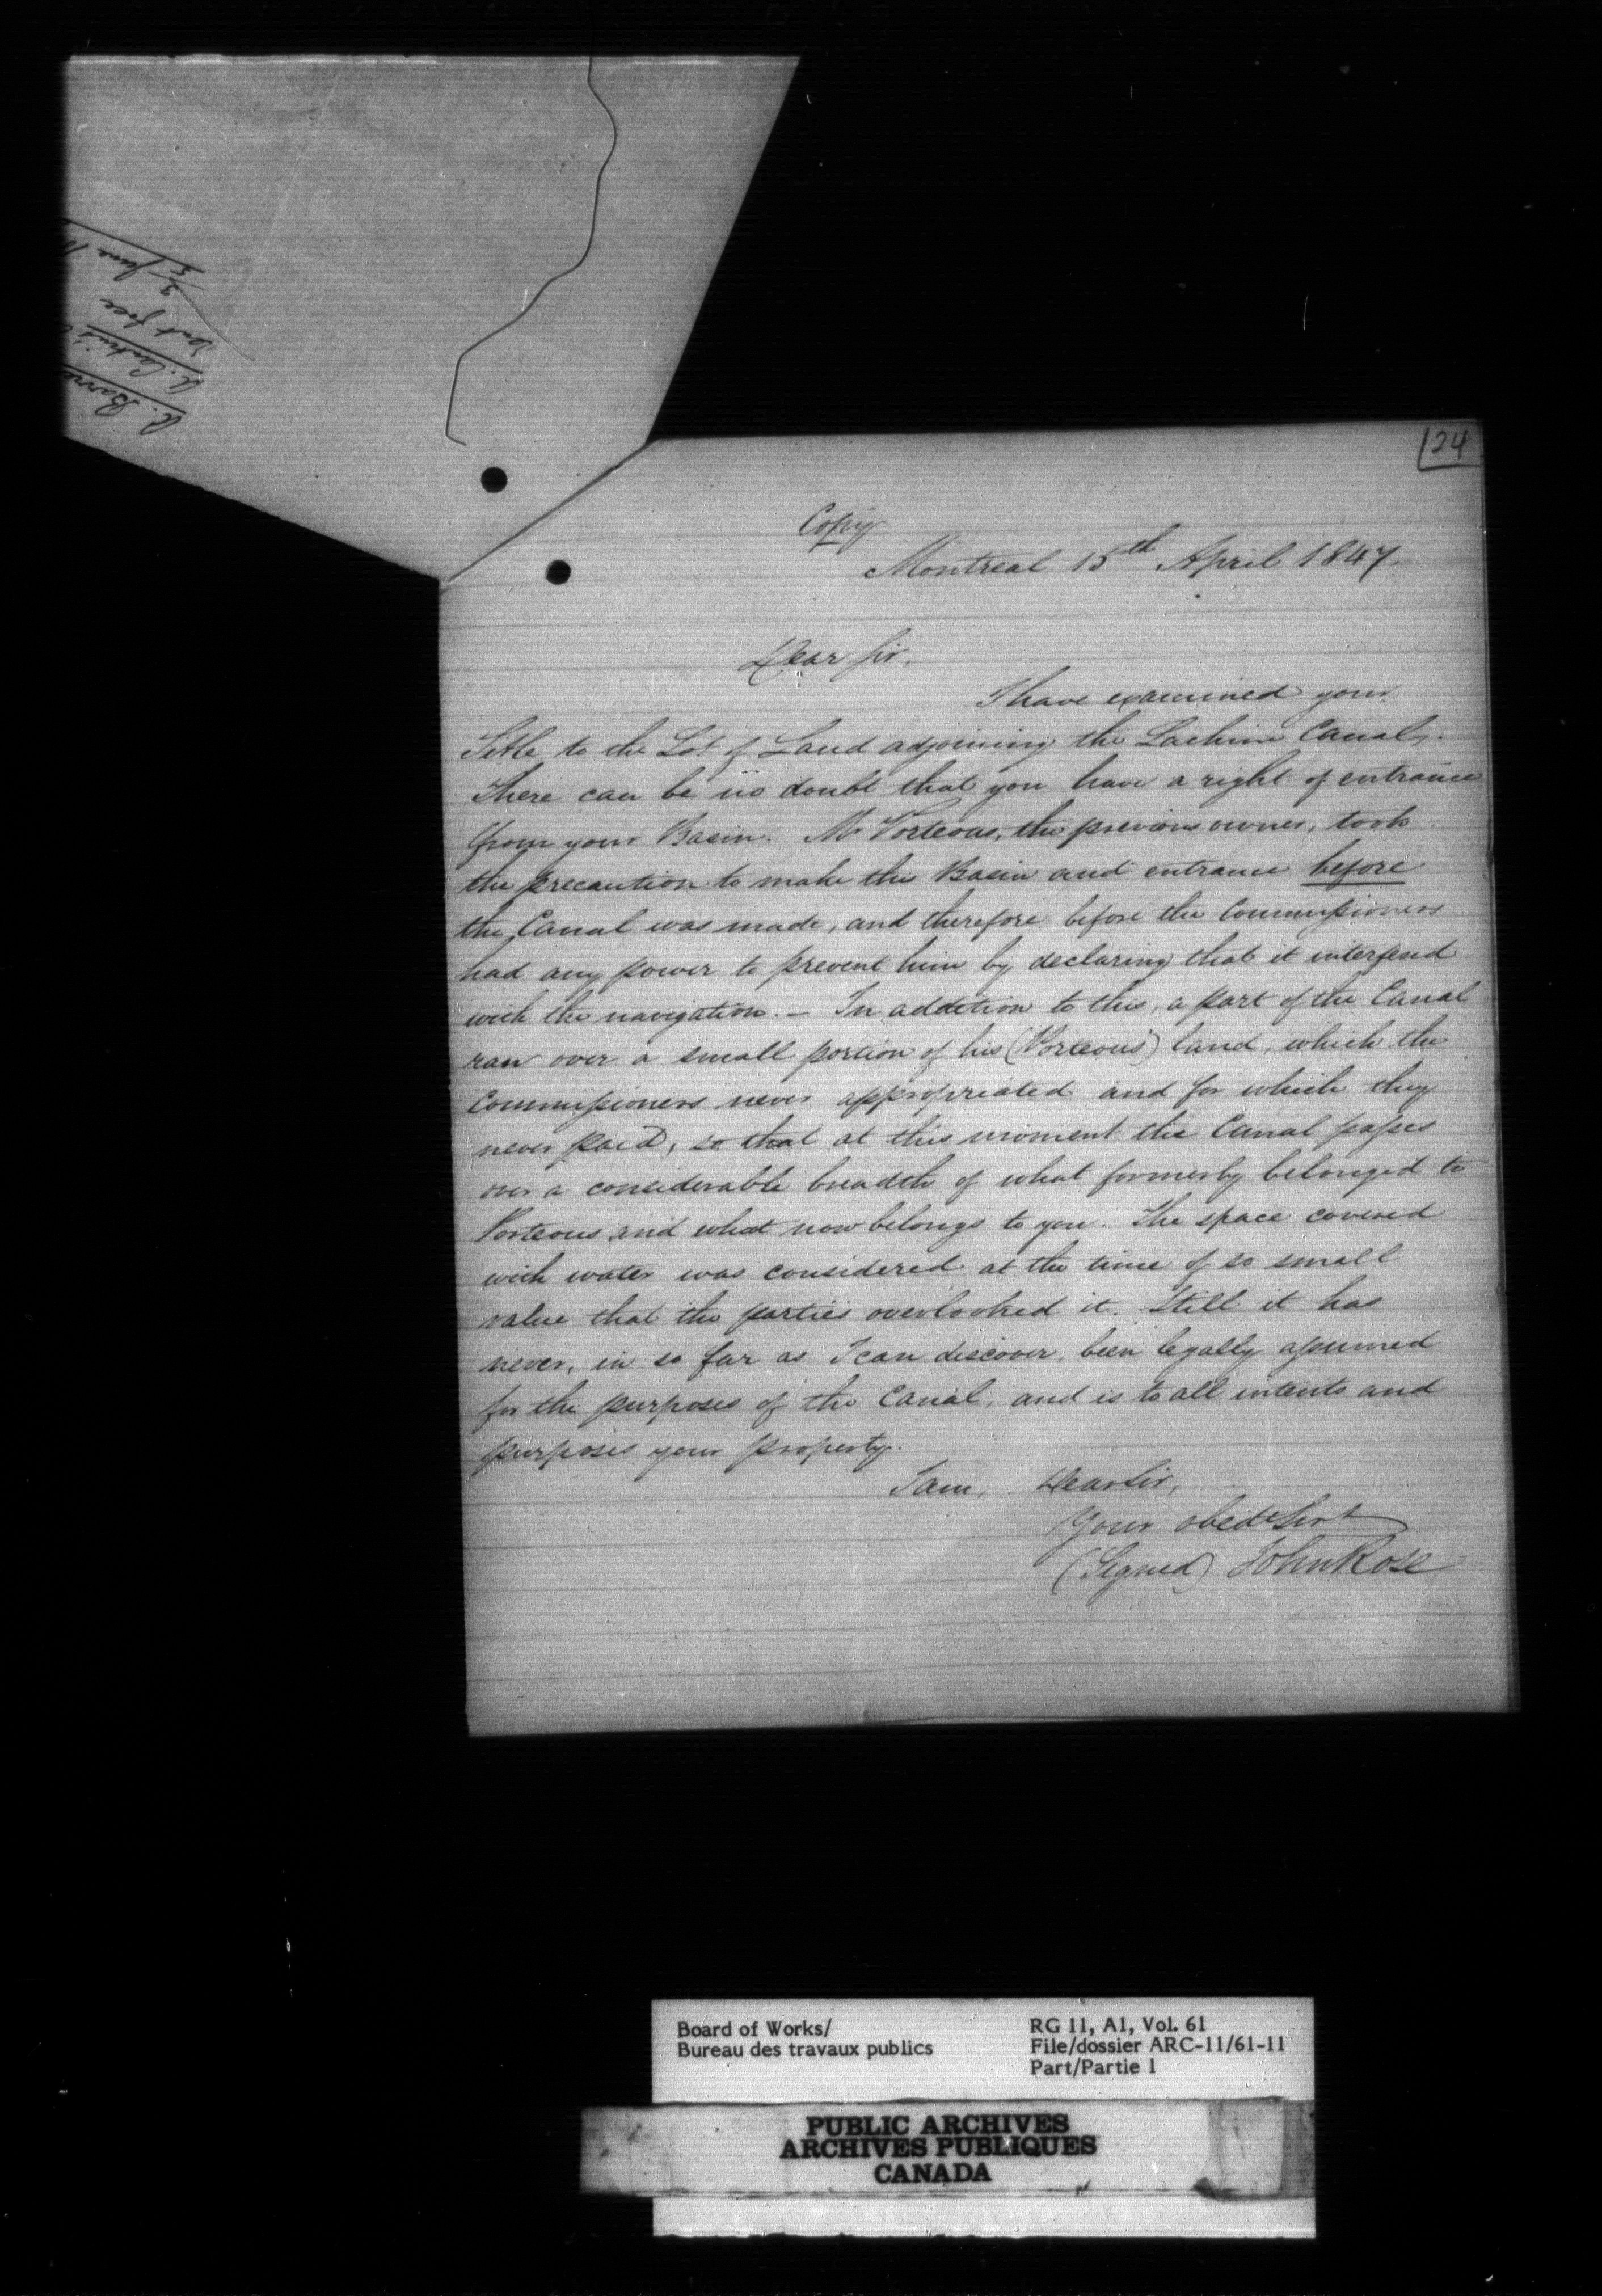 124
Copy
Montreal 15th April 1847.
Dear Sir.
I have examined your
Title to the Lot of Land adjoining the Lachine Canal.
There can be no doubt that you have a right of entrance
from your Basin. Mr Porteous, the previous owner, took
the precaution to make this Basin and entrance before
the Canal was made, and therefore before the Commissioners
had any power to prevent him by declaring that it interfered
with the navigation. – In addition to this, a part of the Canal
ran over a small portion of his (Porteous') land, which the
Commissioners never appropriated and for which they
never paid, so that at this moment the Canal passes
over a considerable breadth of what formerly belonged to
Porteous and what now belongs to you. The space covered
with water was considered at the time of so small
value that the parties overlooked it. Still it has
never, in so far as I can discover, been legally assumed
for the purposes of the Canal, and is to all intents and
purposes your property.
I am, Dear Sir,
Your obedt Servt
(Signed) John Rose
Board of Works/
Bureau des travaux publics
RG 11, A1, Vol. 61
File/dossier ARC-11/61-11
Part/Partie 1
PUBLIC ARCHIVES
ARCHIVES PUBLIQUES
CANADA